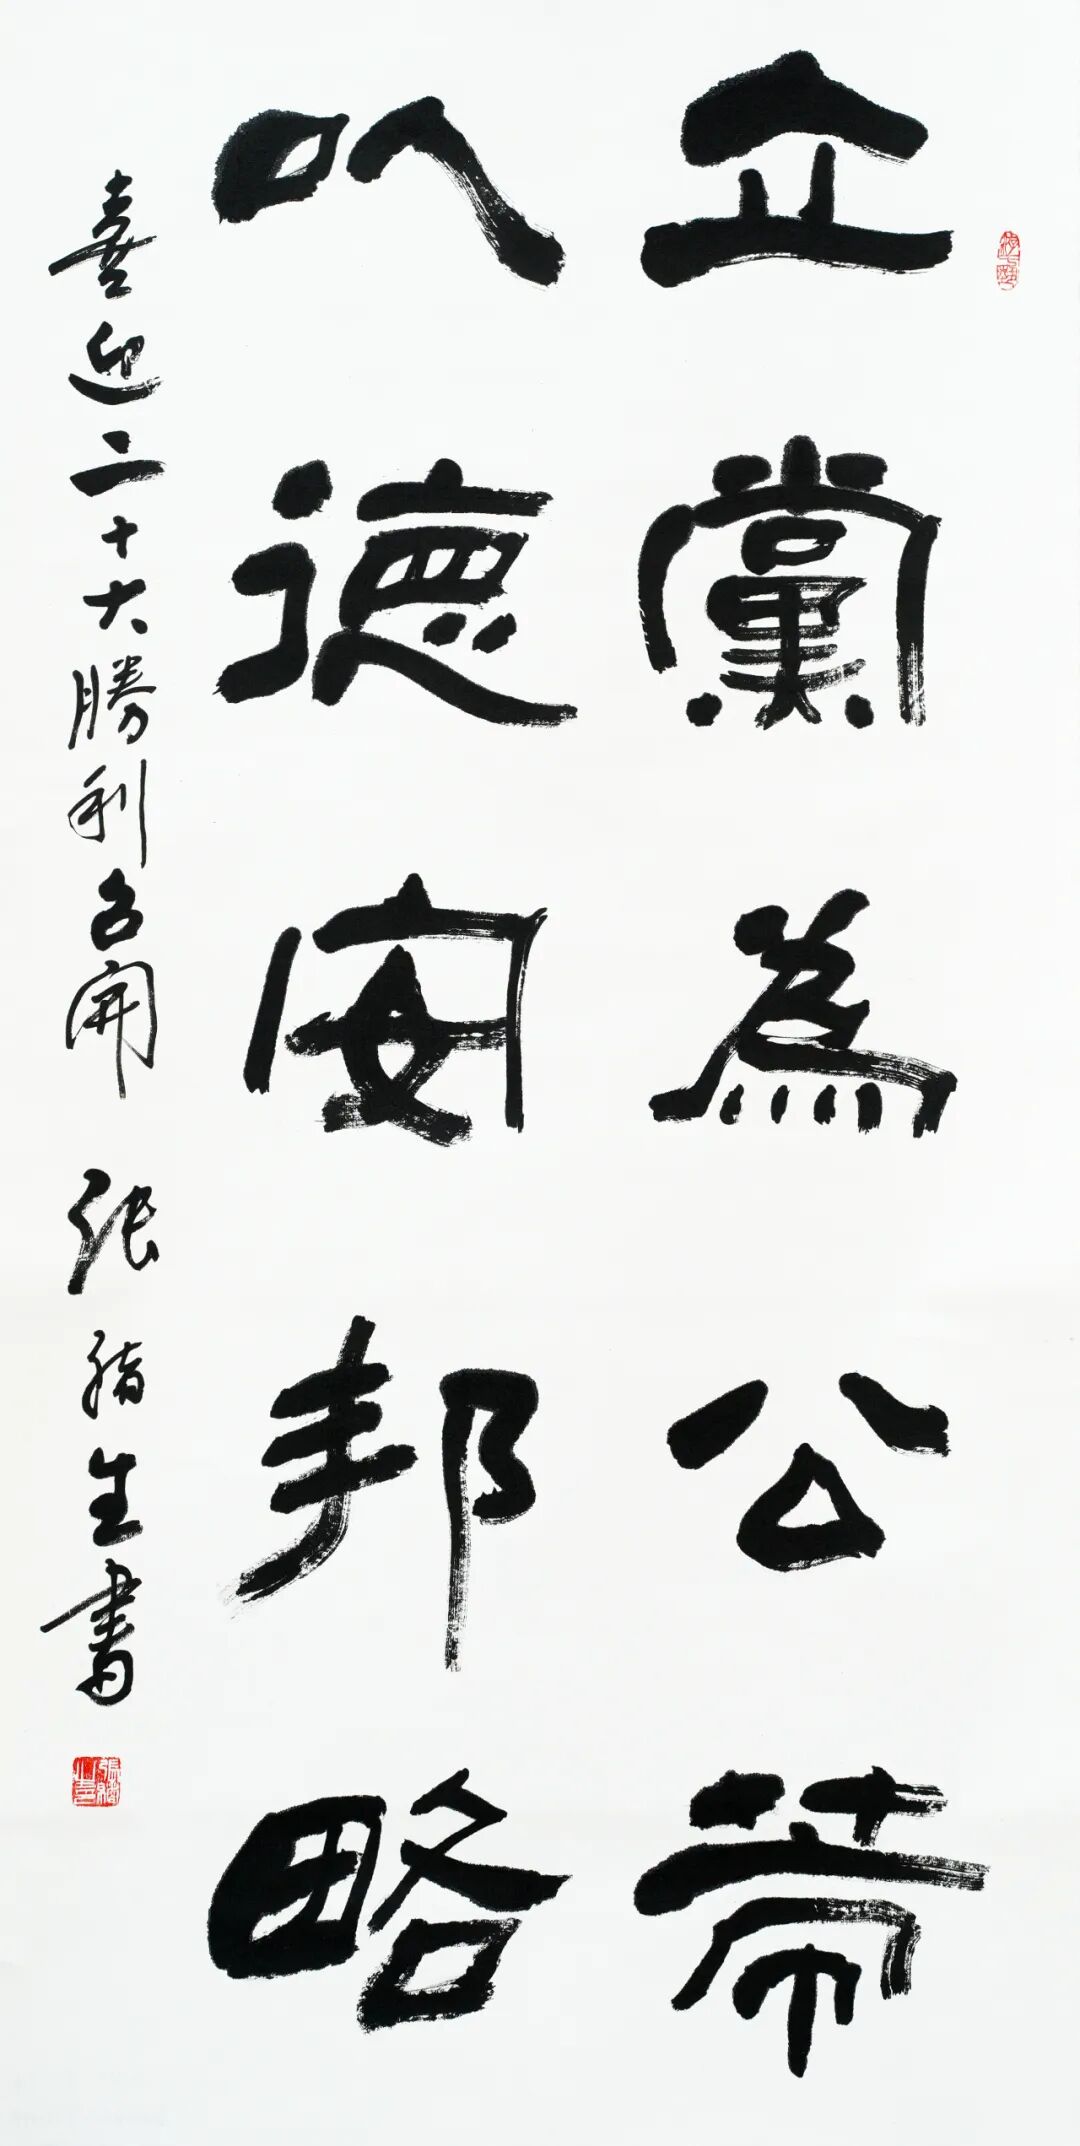 立黨為公策
以德安邦略
喜迎二十大勝利召開 張 生書